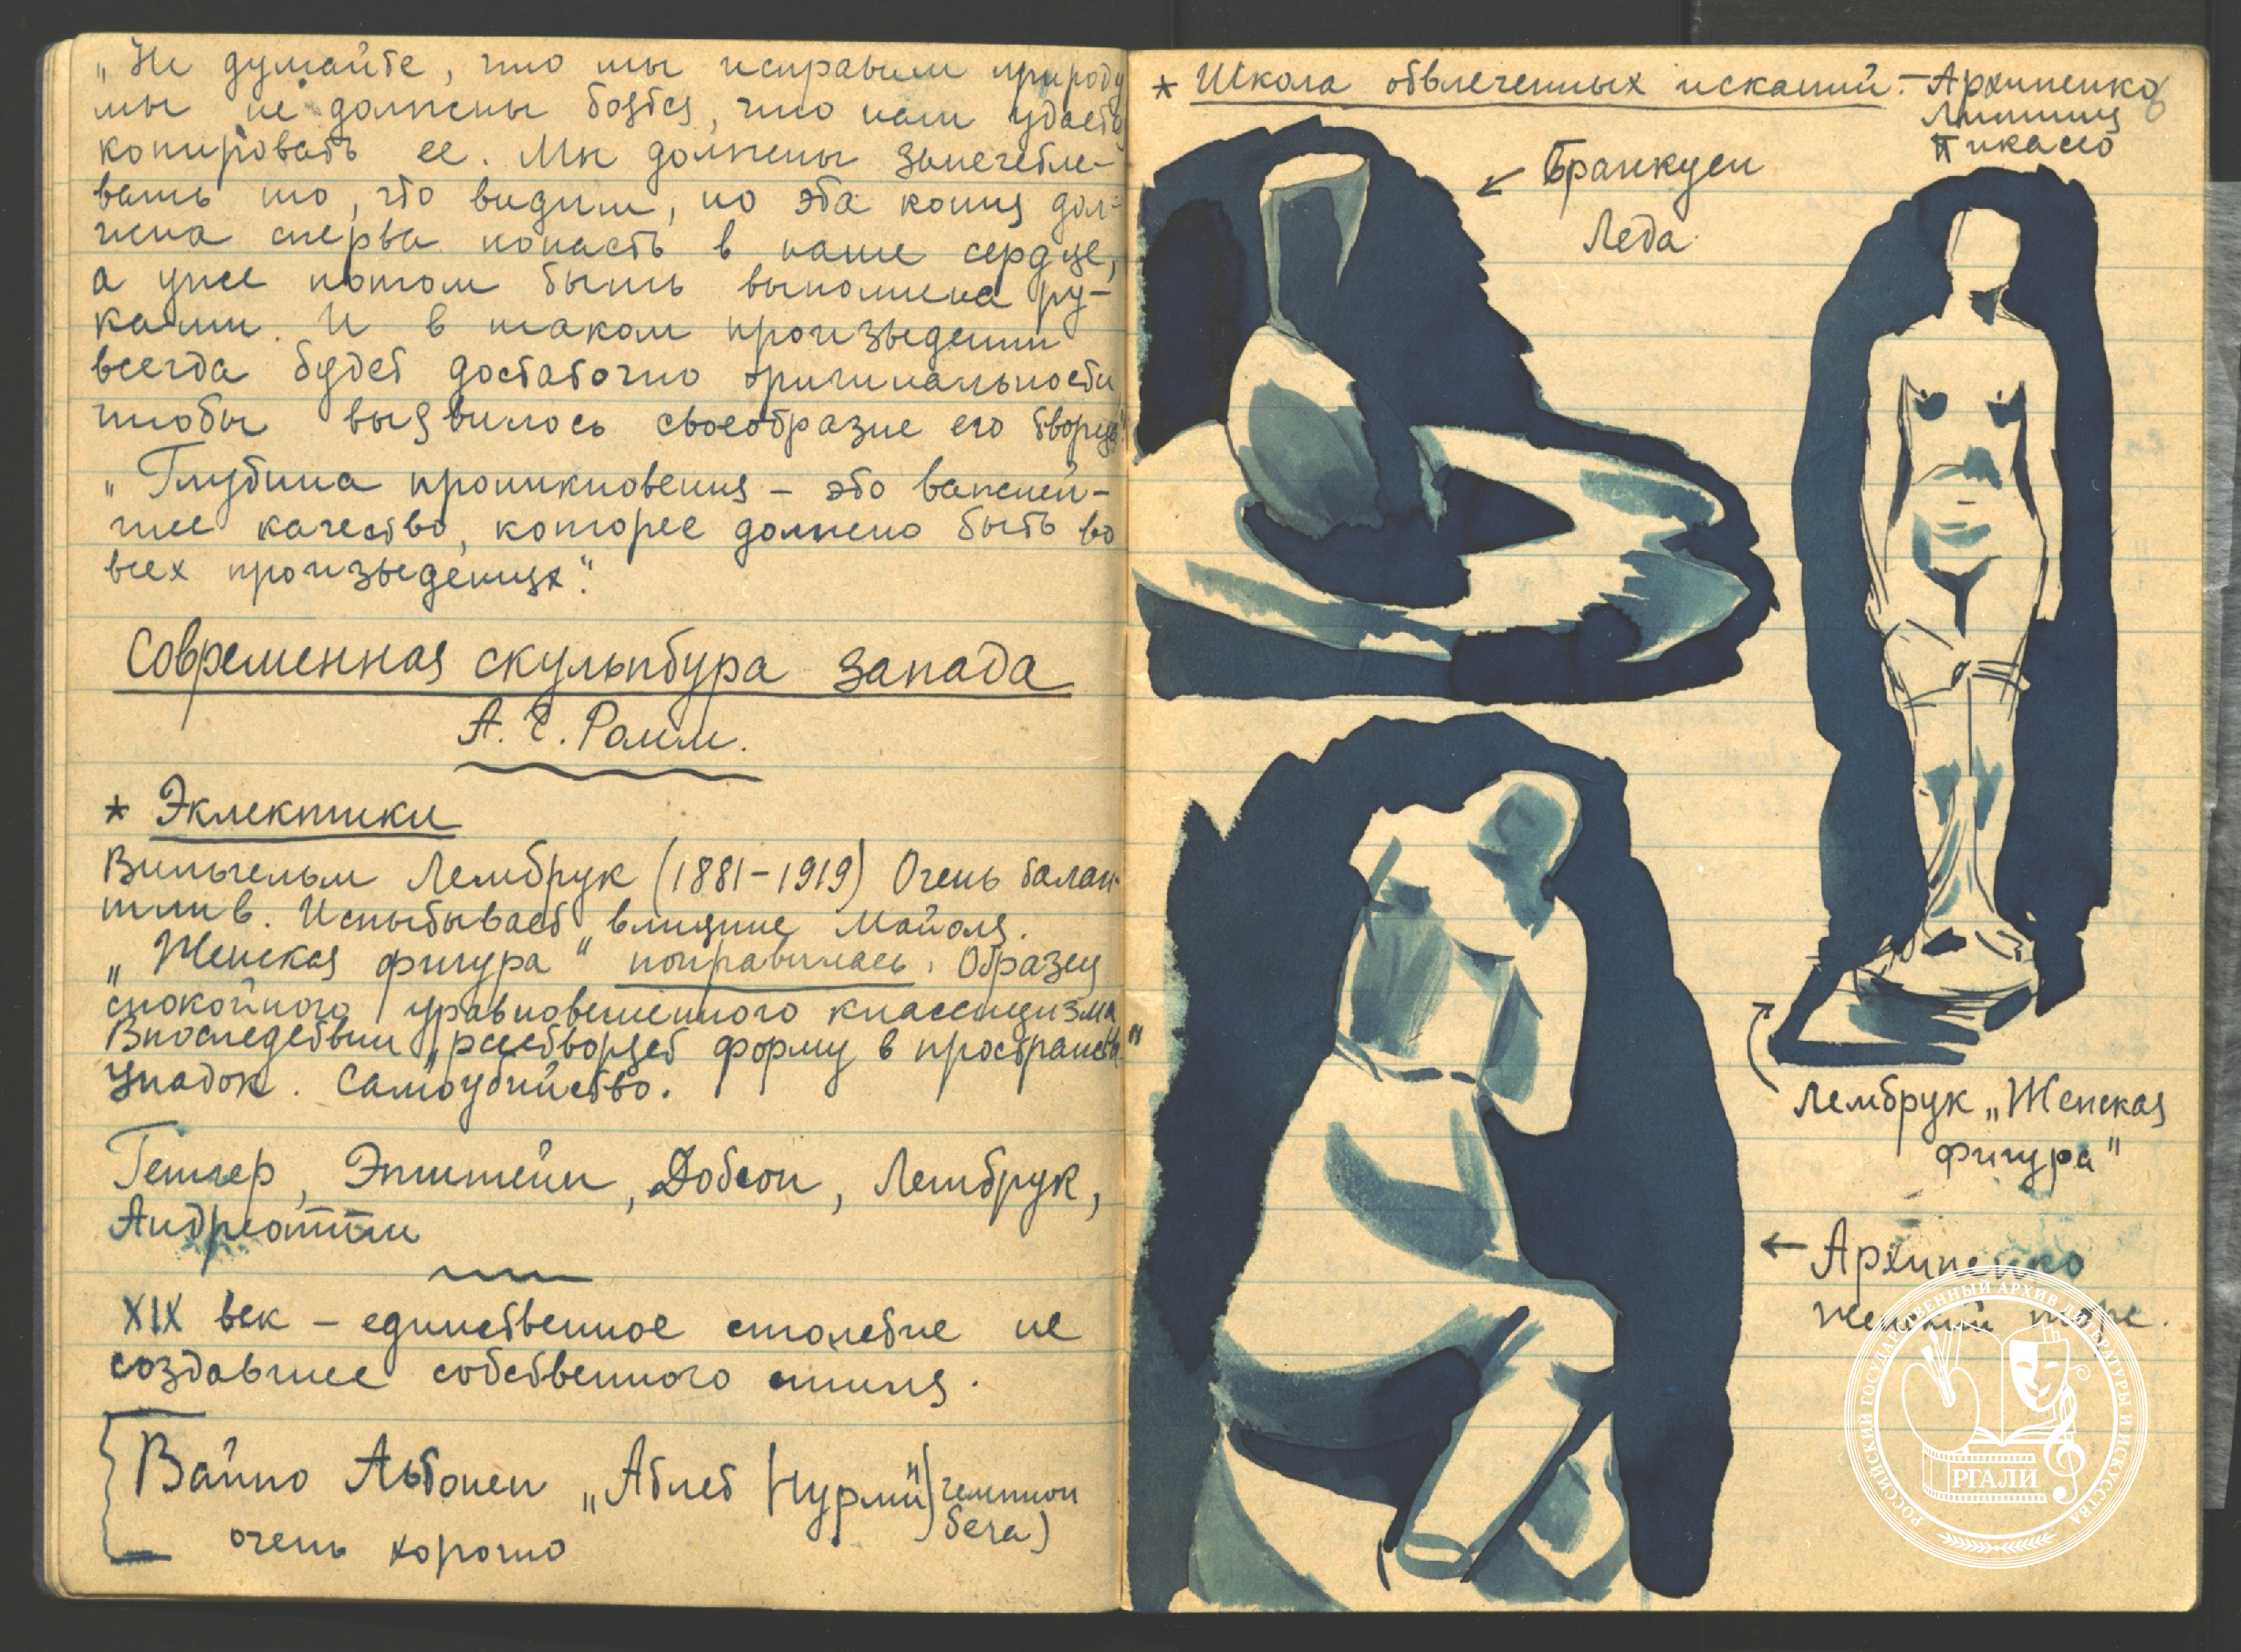 „Не думайте, что мы исправим природу
мы не должны бояться, что нам удастся
копировать ее. Мы должны запечатле-
вать то, что видим, но эта копия дол-
жна сперва попасть в наше сердце,
а уже потом быть выполнена ру-
ками. И в таком произведении
всегда будет достаточно оригинальности
чтобы выявилось своеобразие его творца"
„Глубина проникновения – это важней-
шее качество, которое должно быть во
всех произведениях".
Современная скульптура запада
А. С. Ромм.
* Эклектики
Вильгельм Лембрук (1881-1919) Очень талан-
тлив. Испытывает влияние Майоля.
„Женская фигура" понравилась. Образец
спокойного уравновешенного классицизма
Впоследствии „растворяет форму в пространстве"
Упадок. Самоубийство.
Гетгер, Эпштейн, Добсон, Лембрук,
Андреотти
XIX век – единственное столетие не
создавшее собственного стиля.
Вайно Аьтонен „Атлет (Нурми") чемпион
бега)
очень хорошо
* Школа отвлеченных исканий. – Архипенко
Липшиц
Пикассо
← Бранкуси
Леда
Лембрук „Женская
фигура"
← Архипенко
Женский торс.
РОССИЙСКИЙ ГОСУДАРСТВЕННЫЙ АРХИВ ЛИТЕРАТУРЫ И ИСКУССТВА
РГАЛИ